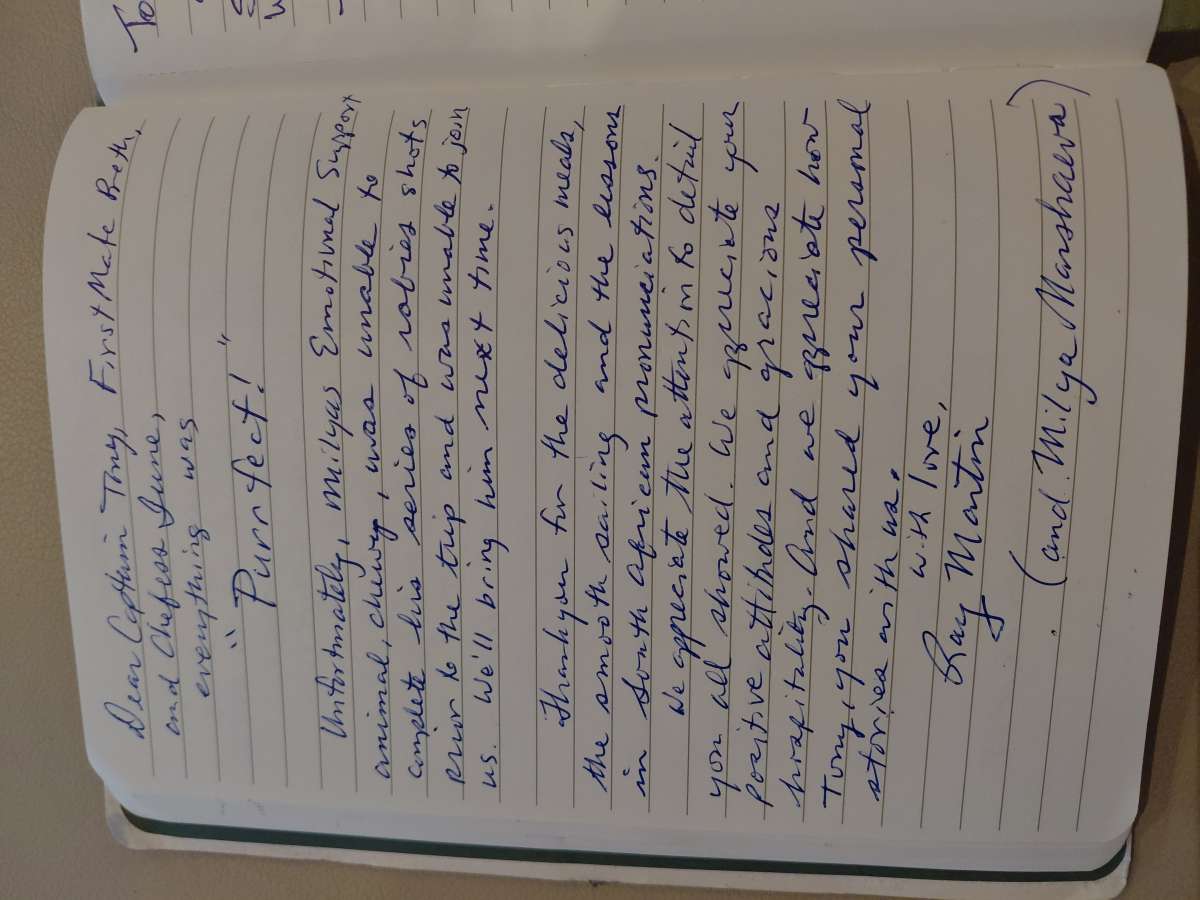 Dear Captain Tony, First Mate Beth,
and Chefess June,
everything was
"Purrfect!"
Unfortunately, Milyas Emotional Support
animal, chewy, was unable to
complete his series of rabies shots
prior to the trip and was unable to join
us. We'll bring him next time.
Thankyou for the delicious meals,
the smooth sailing and the lessons
in South african pronunciations.
We appreciate the attention to detail
you all showed. We appreciate your
positive attitudes and gracious
hospitality. And we appreciate how
Tony, you shared your personal
stories with us.
with love,
Ray Martin
(and Milya Manshaeva)
To